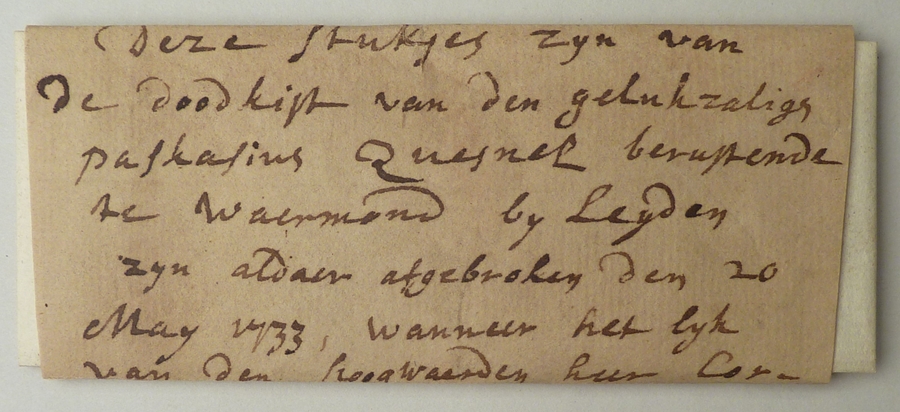 Deze stukjes zyn van
de doodkist van den gelukzalige
paskasius Quesnel berustende
te Waermond by Leyden
zyn aldaer afgebroken den 20
May 1733, wanneer het lyk
van den hoogwaerden heer Cor-